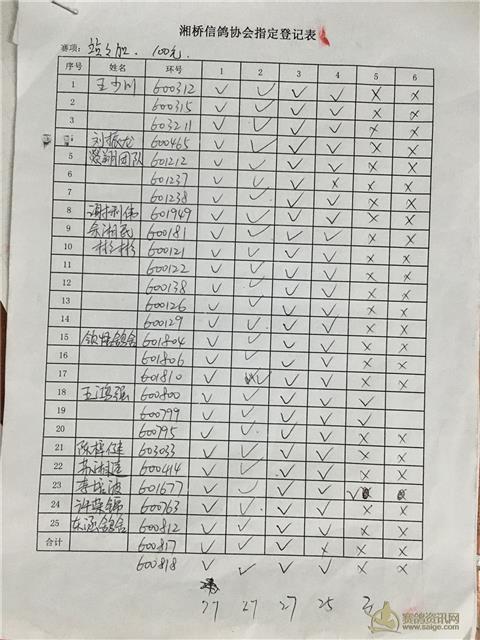 湘桥信鸽协会指定登记表
赛项: 100元
序号 姓名 环号 1 2 3 4 5 6
1 王少川 600312 ✓ ✓ ✓ ✓ × ×
2 600315 ✓ ✓ ✓ ✓ × ×
3 603211 ✓ ✓ ✓ ✓ × ×
刘振龙 600465 ✓ ✓ ✓ ✓ × ×
5 翱翔团队 601212 ✓ ✓ ✓ ✓ × ×
6 601237 ✓ ✓ ✓ × × ×
7 601238 ✓ ✓ ✓ ✓ × ×
8 601949 ✓ ✓ ✓ ✓ × ×
9 余湘民 600181 ✓ ✓ ✓ ✓ × ×
10 彬彬 600121 ✓ ✓ ✓ ✓ × ×
11 600122 ✓ ✓ ✓ ✓ × ×
12 600138 ✓ ✓ ✓ ✓ × ×
13 600126 ✓ ✓ ✓ ✓ × ×
14 600129 ✓ ✓ ✓ ✓ × ×
15 鸽舍 601804 ✓ ✓ ✓ ✓ × ×
16 601806 ✓ ✓ ✓ ✓ × ×
17 601810 ✓ ✓ ✓ ✓ × ×
18 王鸿强 600800 ✓ ✓ ✓ ✓ ✓
19 600799 ✓ ✓ ✓ ✓ ✓
20 600795 ✓ ✓ ✓ ✓ × ×
21 陈梓健 603033 ✓ ✓ ✓ ✓ × ×
22 600414 ✓ ✓ ✓ ✓ × ×
23 李培波 601677 ✓ ✓ ✓ ✓ ✓ ×
24 600763 ✓ ✓ ✓ ✓ × ×
25 东涵鸽舍 600812 ✓ ✓ ✓ ✓ × ×
合计 600817 ✓ ✓ ✓ × × ×
600818 ✓ ✓ ✓ ✓ × ×
27 27 27 25 3
赛鸽资讯网
www.saige.com